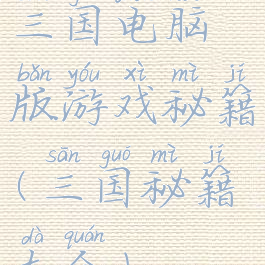 三国电脑
bǎn yóu xì mì jí
版游戏秘籍
sān guó mì jí
(三国秘籍
dà quán